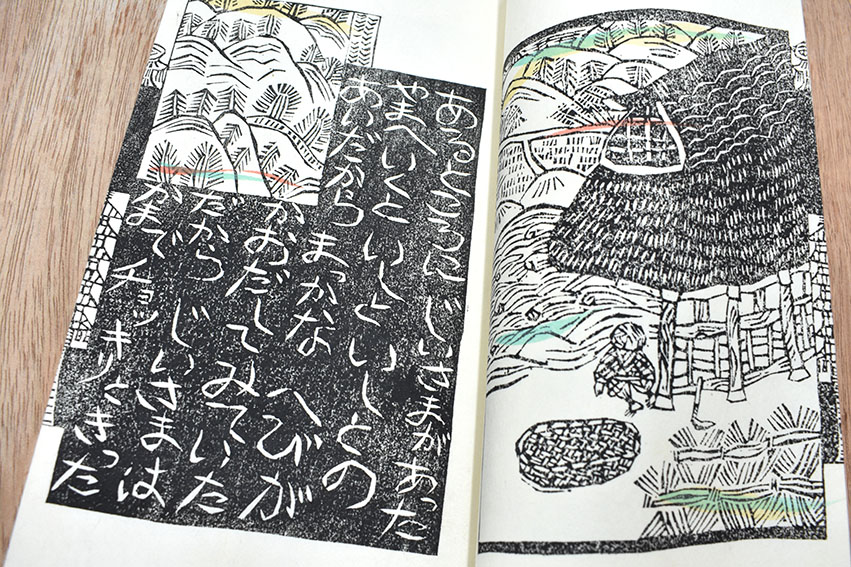 あるところにじいさまがあった
やまへいくといしといしとの
あいだから まっかな へびが
かおだしてみていた
だから じいさまは
かまで チョッキリときった